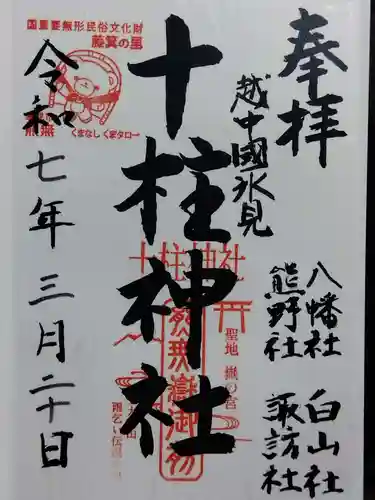 奉拝
越中國氷見
八幡社
熊野社
白山社
諏訪社
十柱神社
令和七年三月二十日
国重要無形民俗文化財
藤箕の里
熊無
くまなしくまタロー
十柱神社
聖地
の宮
雨乞い伝